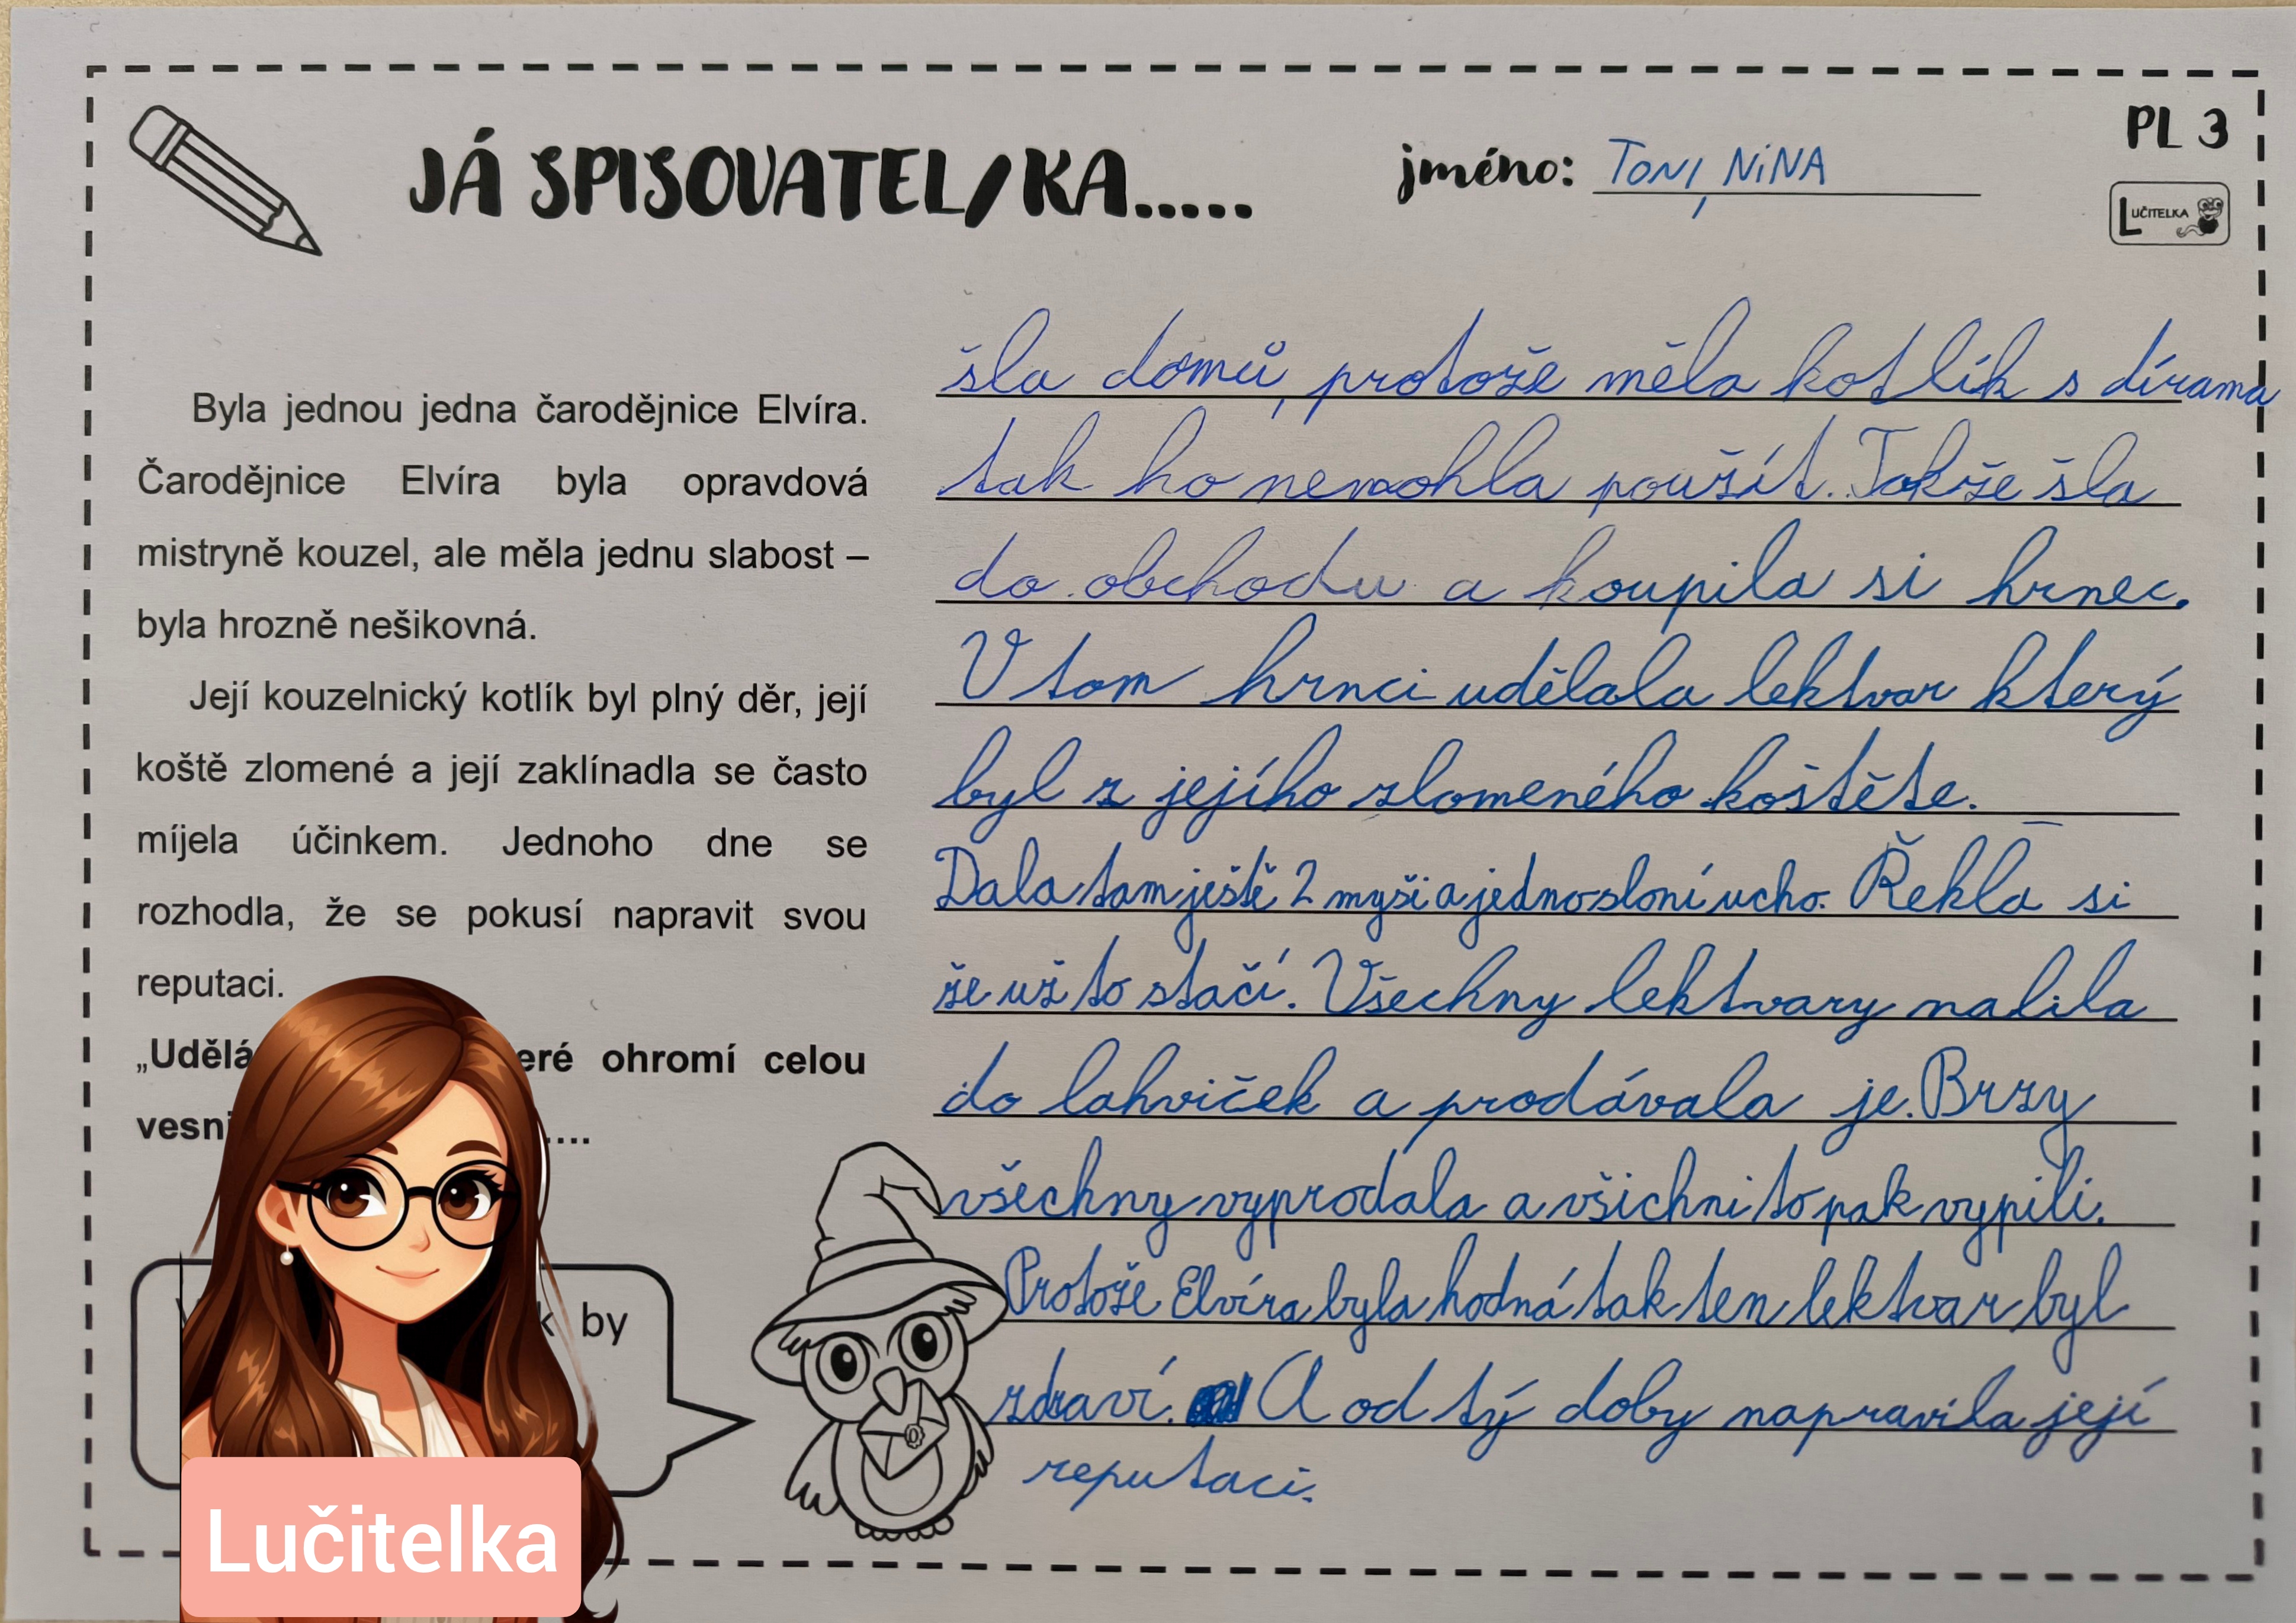 JÁ SPISOVATEL/KA.....
jméno: TONI, NiNA
PL 3
LUČITELKA
Byla jednou jedna čarodějnice Elvíra.
Čarodějnice Elvíra byla opravdová
mistryně kouzel, ale měla jednu slabost –
byla hrozně nešikovná.
Její kouzelnický kotlík byl plný děr, její
koště zlomené a její zaklínadla se často
míjela účinkem. Jednoho dne se
rozhodla, že se pokusí napravit svou
reputaci.
„Udělá eré ohromí celou
vesni ....
k by
Lučitelka
šla domů, protože měla kotlík s dírama
tak ho nemohla použít. Takže šla
do obchodu a koupila si hrnec.
V tom hrnci udělala lektvar který
byl z jejího zlomeného koštěte.
Dala tam ještě 2 myši a jedno sloní ucho. Řekla si
že už to stačí. Všechny lektvary nalila
do lahviček a prodávala je. Brzy
všechny vyprodala a všichni to pak vypili.
Protože Elvíra byla hodná tak ten lektvar byl
zdraví. A od tý doby napravila její
reputaci.